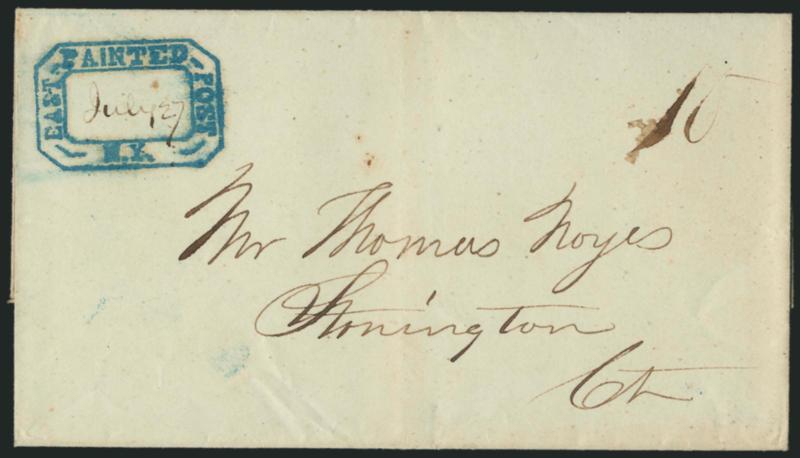 EAST PAINTED POST
July 27
N.Y.
10
Mr Thomas Noyes
Stonington
Ct